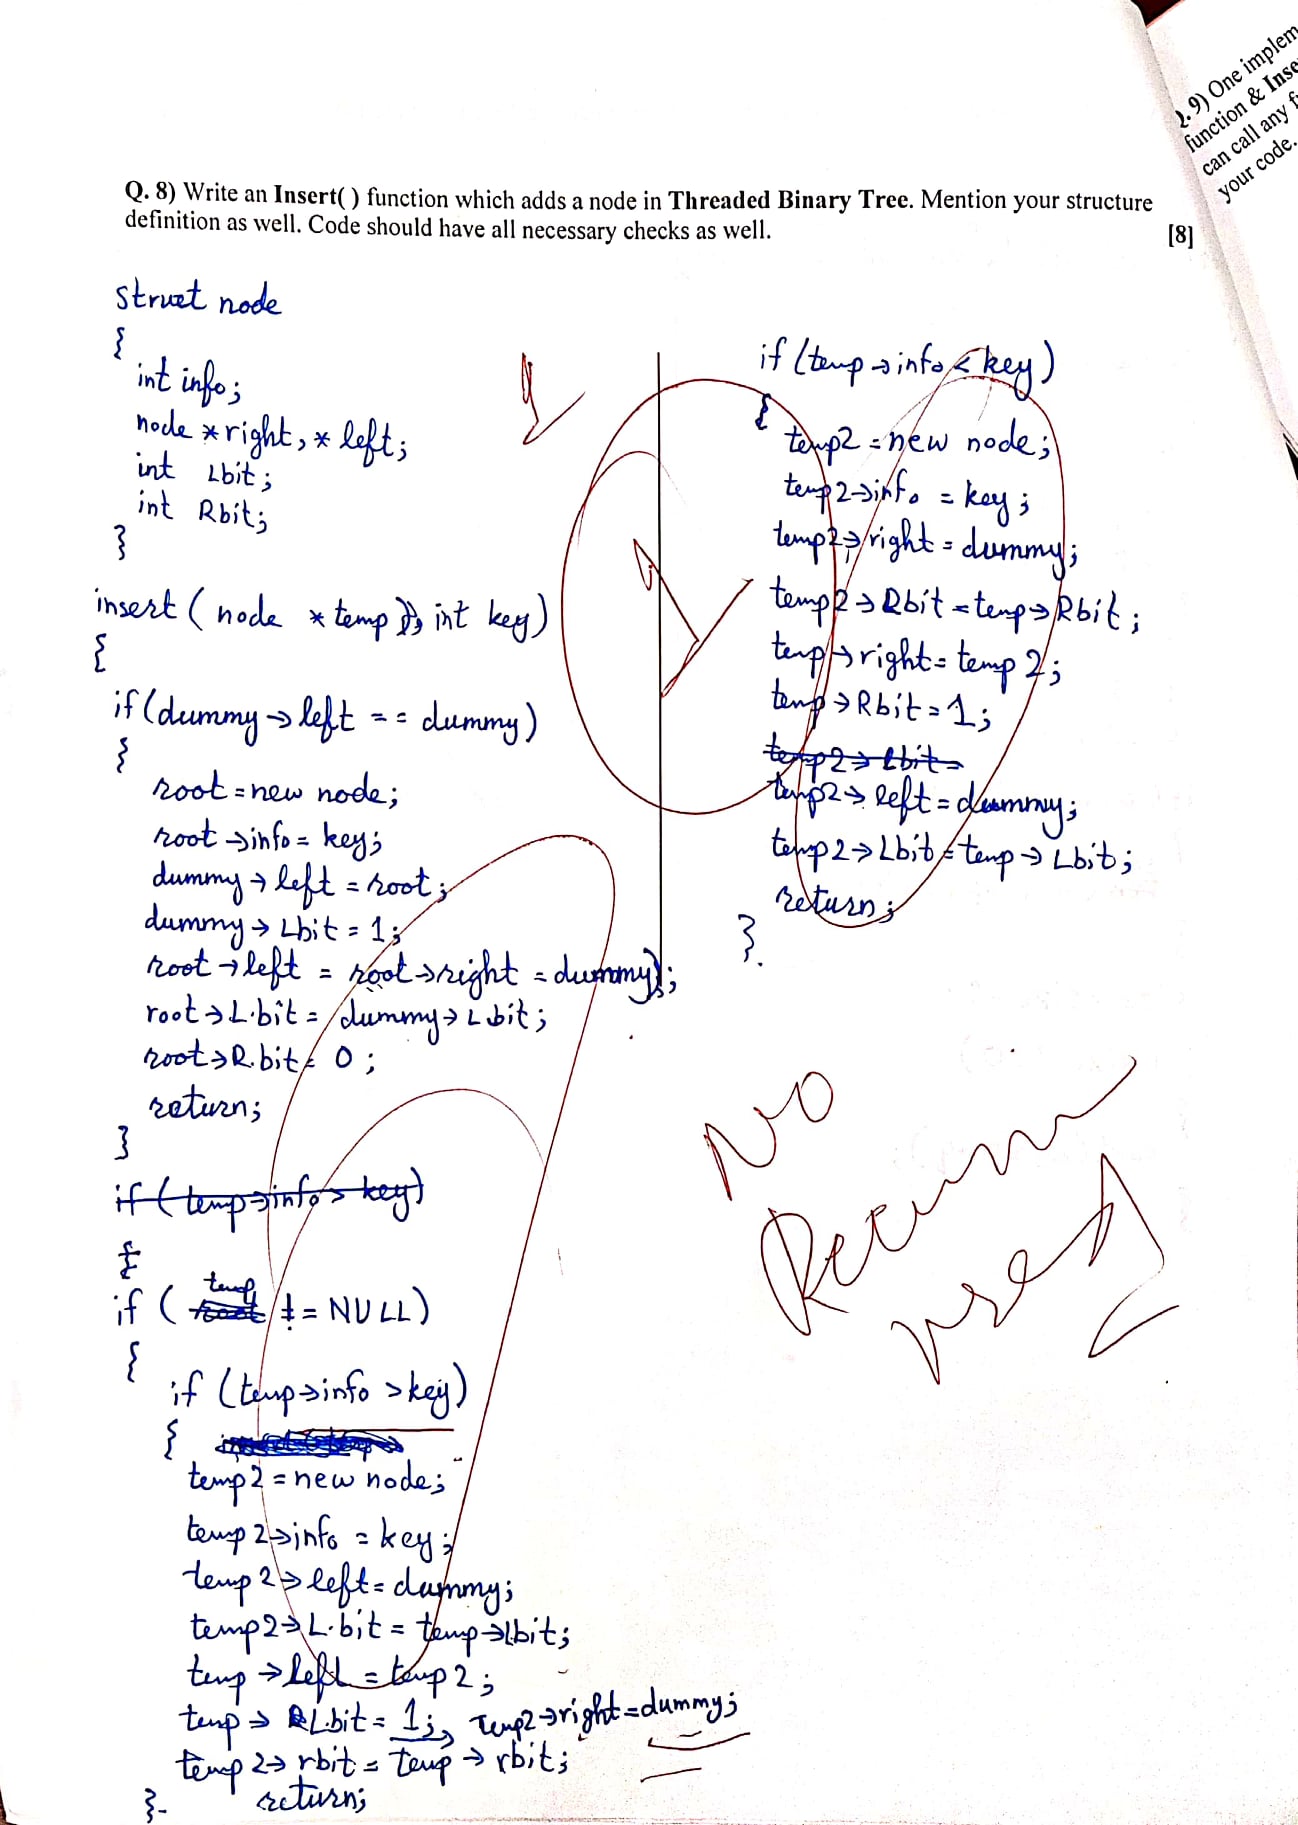 Q. 8) Write an Insert( ) function which adds a node in Threaded Binary Tree. Mention your structure
definition as well. Code should have all necessary checks as well.
[8]
struct node
{
int info;
node *right, * left;
int Lbit;
int Rbit;
}
insert ( node * temp, int key)
{
if (dummy → left == dummy)
{
root = new node;
root → info = key;
dummy → left = root;
dummy → Lbit = 1;
root → left = root → right = dummy;
root → L.bit = dummy → Lbit;
root → R.bit = 0;
return;
}
if ( temp → info > key)
{
if ( temp != NULL)
{
if (temp → info > key)
{
temp2 = new node;
temp2 → info = key;
temp2 → left = dummy;
temp2 → L.bit = temp → lbit;
temp → left = temp2;
temp → L.bit = 1; Temp2 → right = dummy;
temp2 → rbit = temp → rbit;
return;
}
if (temp → info < key)
{
temp2 = new node;
temp2 → info = key;
temp2 → right = dummy;
temp2 → Rbit = temp → Rbit;
temp → right = temp2;
temp → Rbit = 1;
temp2 → Lbit =
temp2 → left = dummy;
temp2 → Lbit = temp → Lbit;
return;
}.
No
used
2.9) One implem
function & Inse
can call any f
your code.